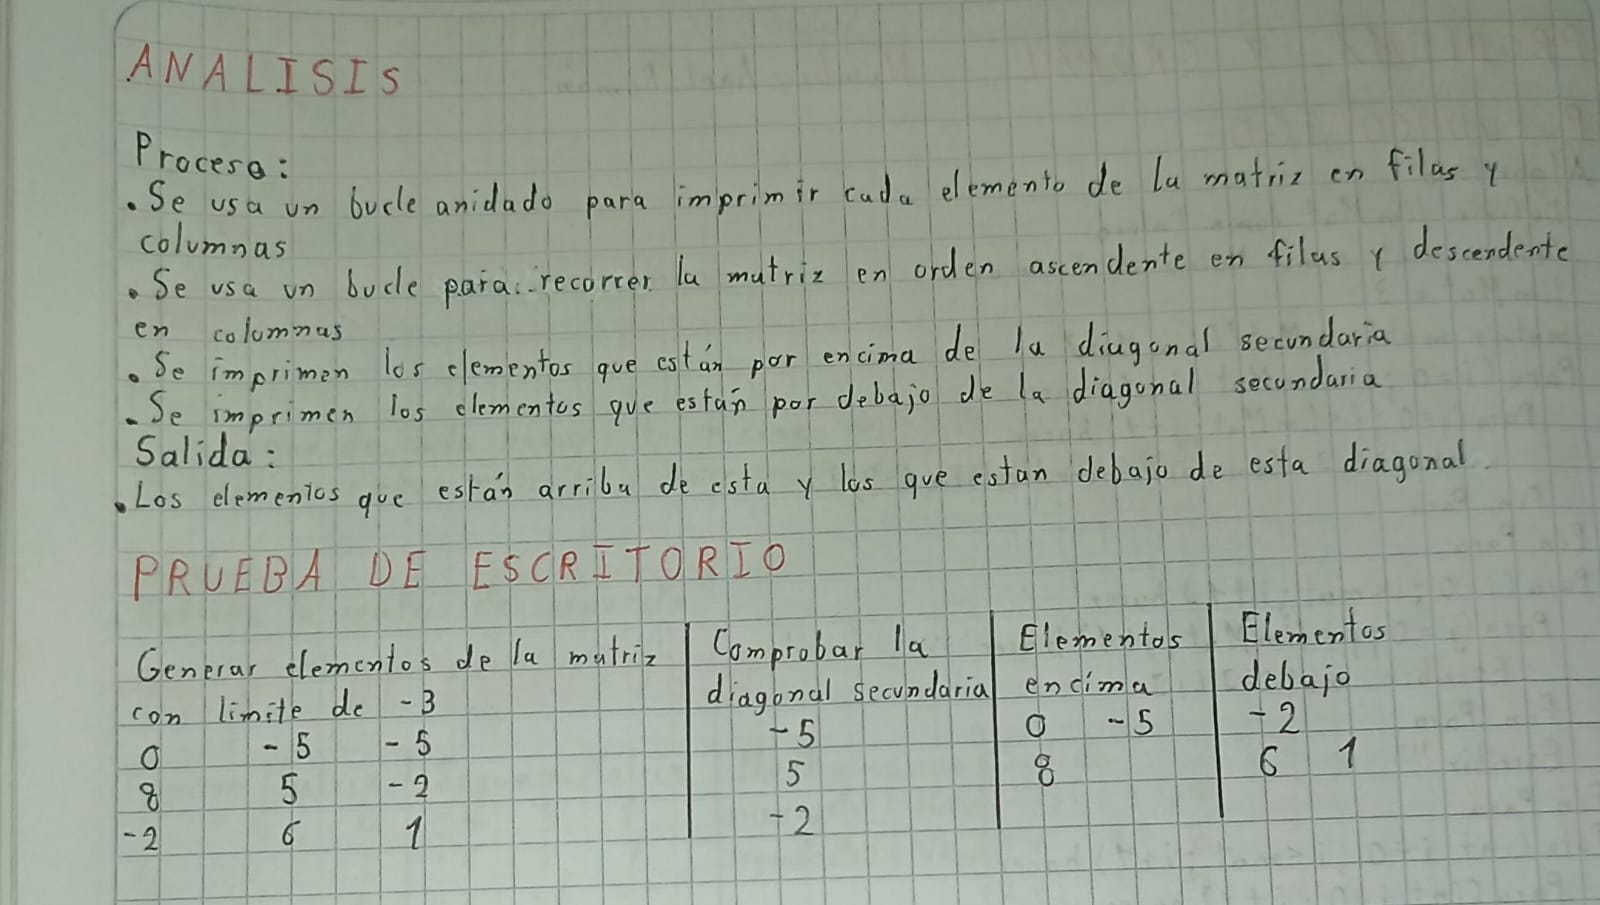 ANALISIS
Proceso:
• Se usa un bucle anidado para imprimir cada elemento de la matriz en filas y
columnas
• Se usa un bucle para recorrer la matriz en orden ascendente en filas y descendente
en columnas
• Se imprimen los elementos que están por encima de la diagonal secundaria
• Se imprimen los elementos que están por debajo de la diagonal secundaria
Salida:
• Los elementos que están arriba de esta y los que estan debajo de esta diagonal.
PRUEBA DE ESCRITORIO
Generar elementos de la matriz | Comprobar la | Elementos | Elementos
con limite de -3 | diagonal secundaria | encima | debajo
0 -5 -5 | -5 | 0 -5 | -2
8 5 -2 | 5 | 8 | 6 1
-2 6 1 | -2